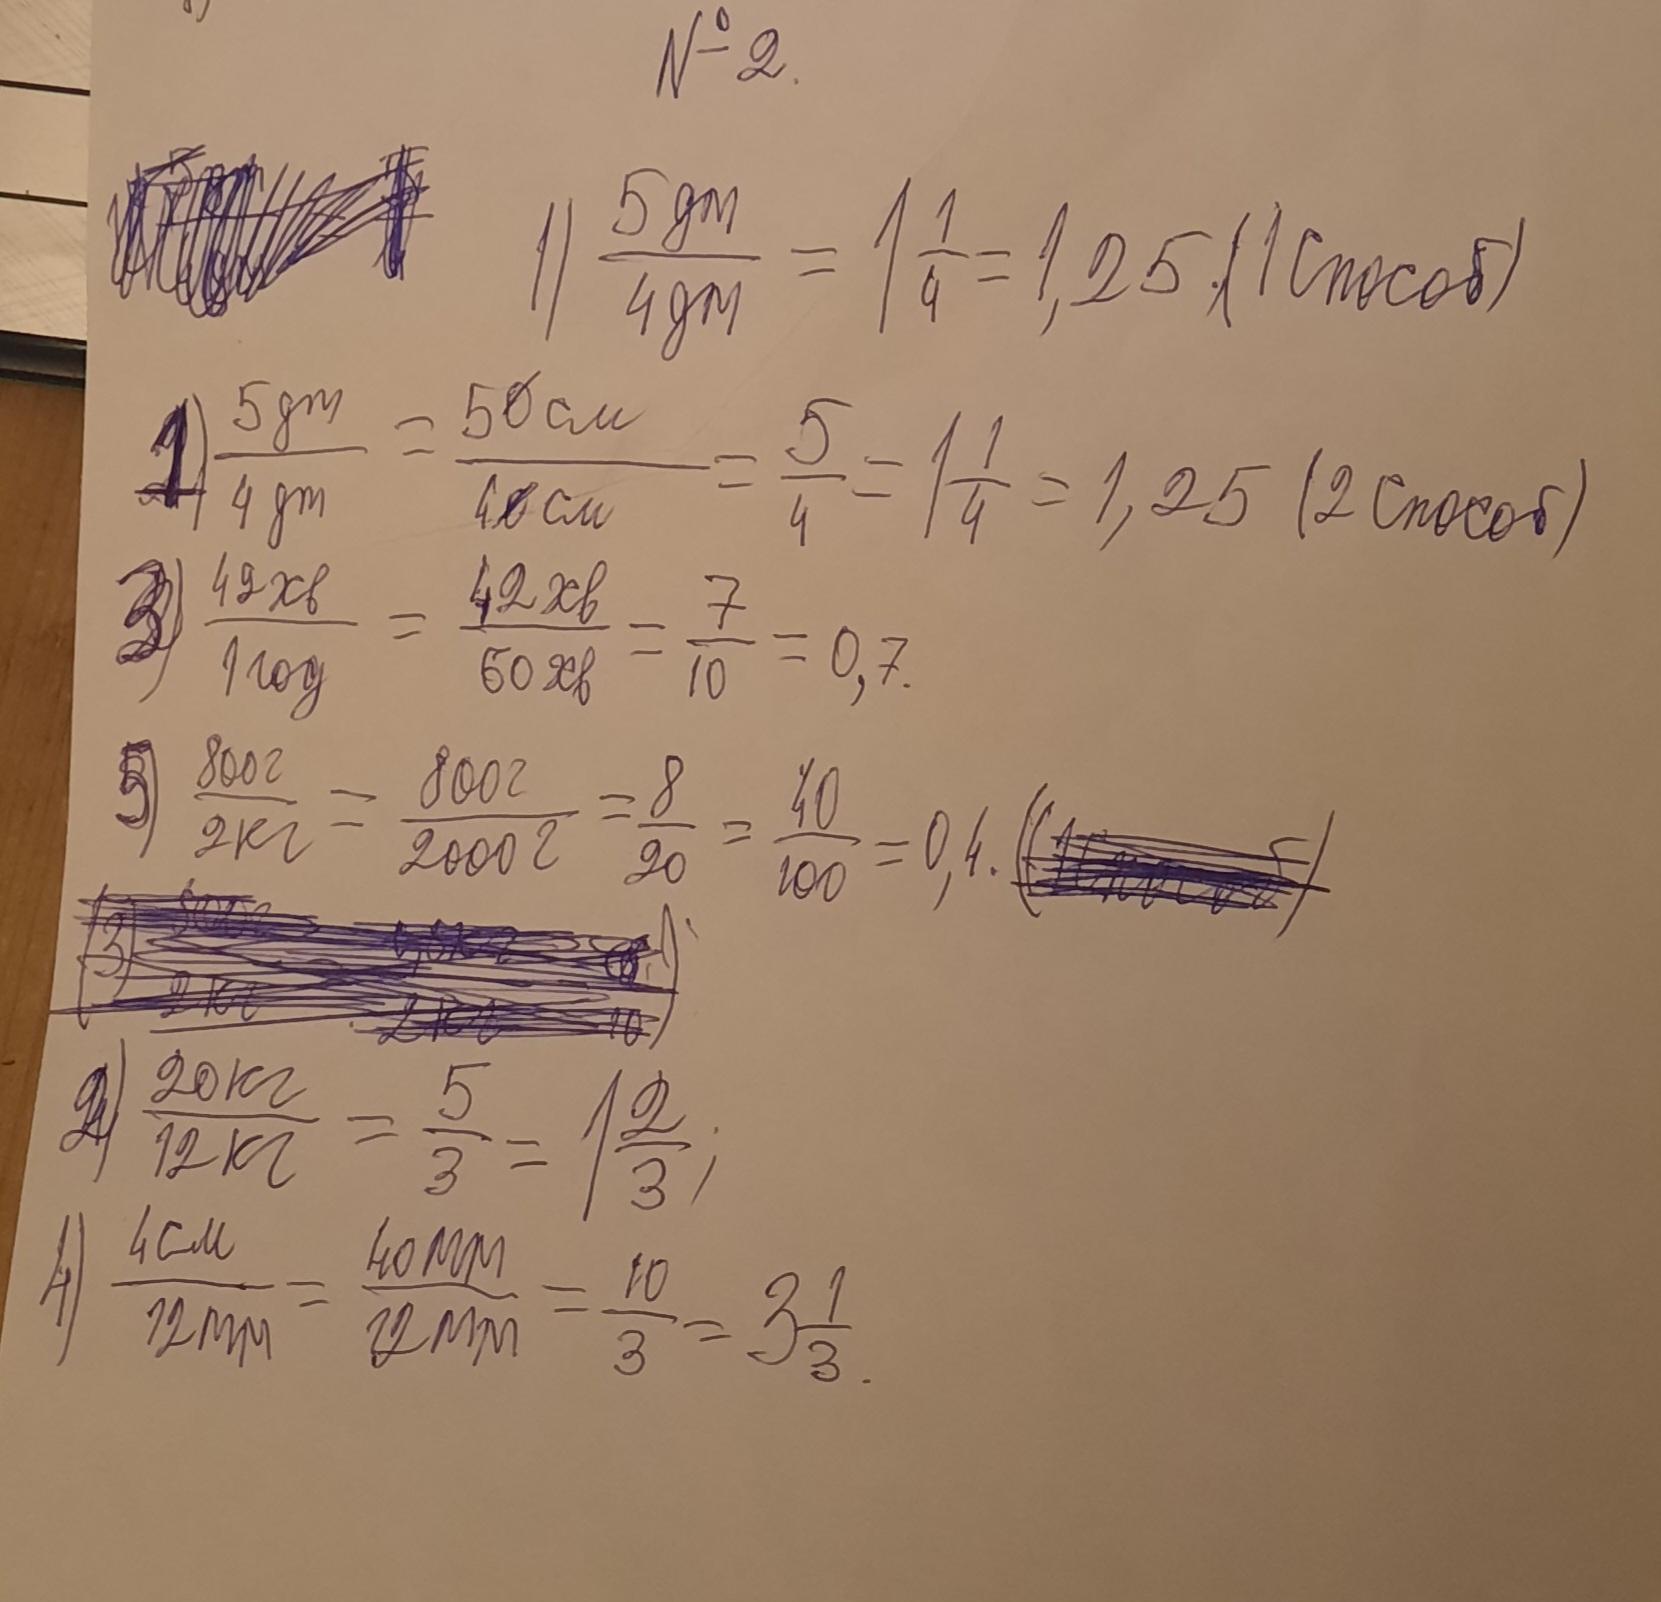 № 2.
1) 5дм/4дм = 1 1/4 = 1,25. (1 способ)
1) 5дм/4дм = 50см/40см = 5/4 = 1 1/4 = 1,25 (2 способ)
3) 42хв/1год = 42хв/60хв = 7/10 = 0,7.
5) 800г/2кг = 800г/2000г = 8/20 = 40/100 = 0,4.
2) 20кг/12кг = 5/3 = 1 2/3;
4) 4см/12мм = 40мм/12мм = 10/3 = 3 1/3.